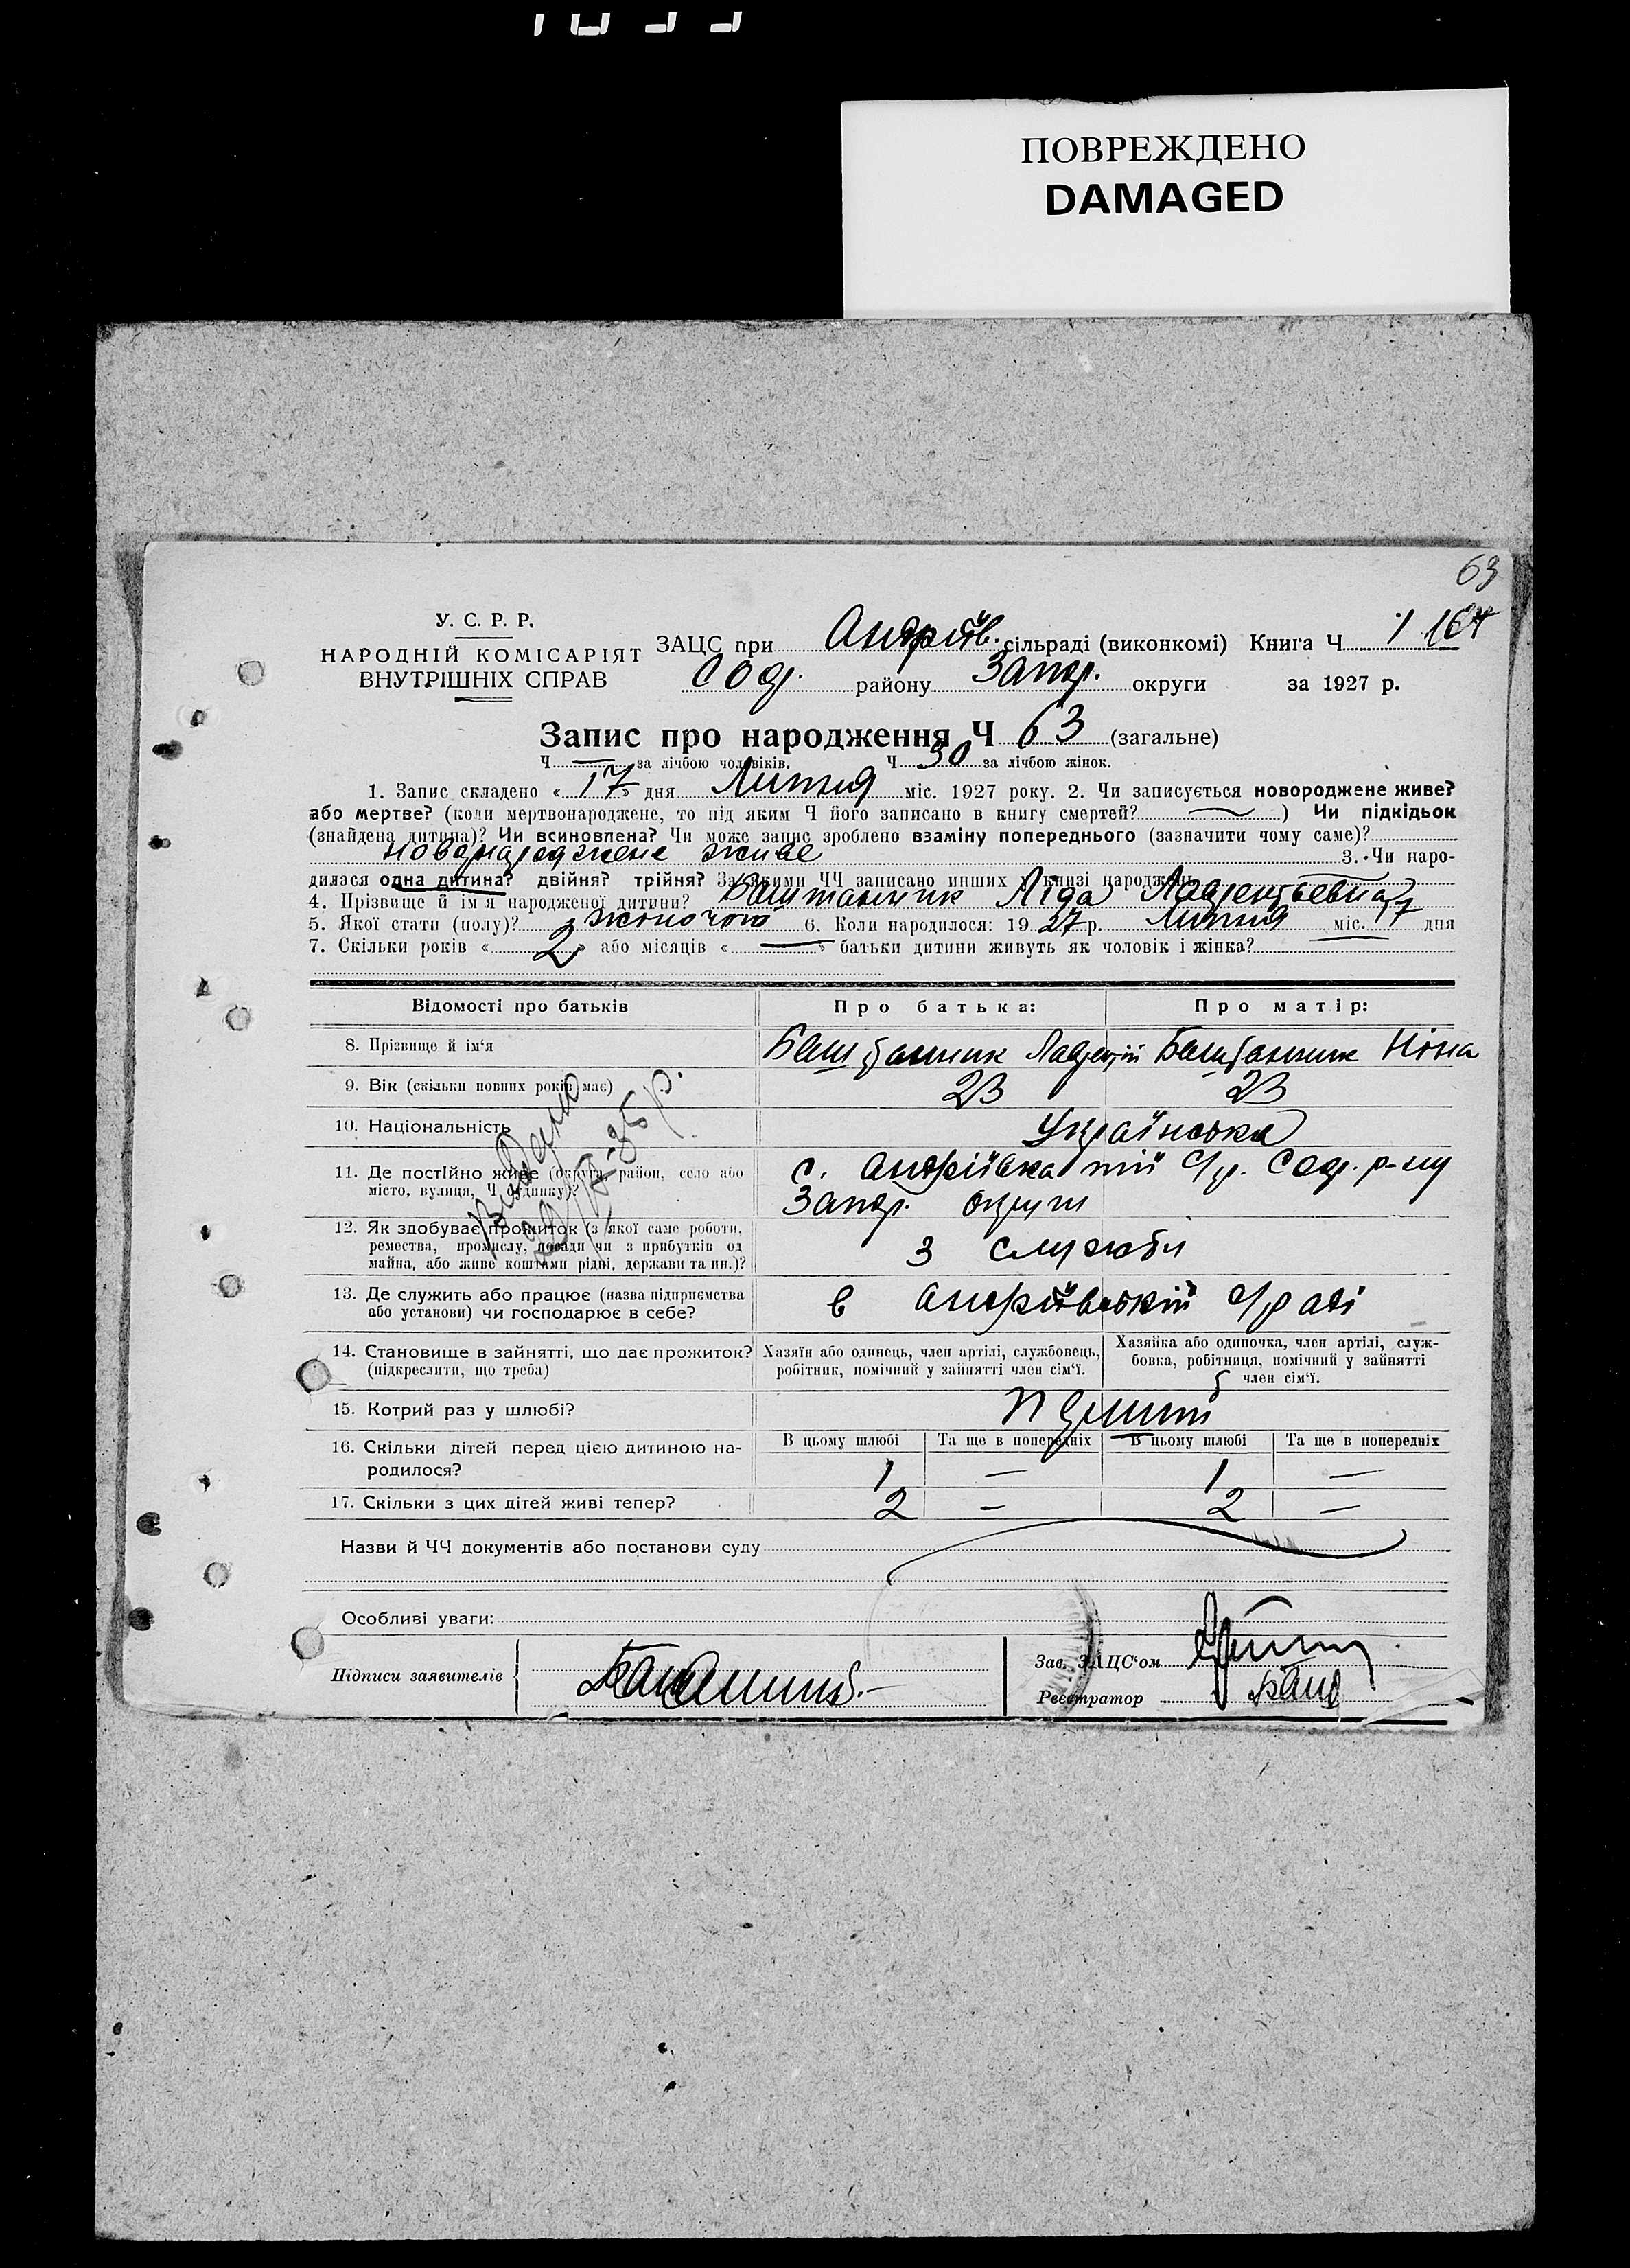 ПОВРЕЖДЕНО
DAMAGED
63
У. С. Р. Р.
НАРОДНІЙ КОМІСАРІЯТ
ВНУТРІШНІХ СПРАВ
ЗАЦС при Андріїв. сільраді (виконкомі) Книга Ч 1
Соф. району Запор. округи за 1927 р.
Запис про народження Ч 63 (загальне)
Ч — за лічбою чоловіків. Ч 30 за лічбою жінок.
1. Запис складено « 17 » дня Липня міс. 1927 року. 2. Чи записується новороджене живе?
або мертве? (коли мертвонароджене, то під яким Ч його записано в книгу смертей? — ) Чи підкідьок
(знайдена дитина)? Чи всиновлена? Чи може запис зроблено взаміну попереднього (зазначити чому саме)?
новонароджене живе 3. Чи наро-
дилася одна дитина? двійня? трійня? За якими ЧЧ записано инших у книзі народжень
4. Прізвище й ім'я народженої дитини? Баштанник Ліда
5. Якої статі (полу)? жіночої 6. Коли народилося: 1927 р. Липня міс. 17 дня
7. Скільки років « 2 » або місяців « — » батьки дитини живуть як чоловік і жінка?
Відомості про батьків
Про батька:
Про матір:
8. Прізвище й ім'я
Баштанник
Баштанник Ніна
9. Вік (скільки повних років має)
23
23
10. Національність
Українська
11. Де постійно живе (округа, район, село або
місто, вулиця, Ч будинку)?
с. Андріївка тій с/р. Соф. р-ну
Запор. округи
12. Як здобуває прожиток (з якої саме роботи,
ремества, промислу, посади чи з прибутків од
майна, або живе коштами рідні, держави та ин.)?
З служби
13. Де служить або працює (назва підприємства
або установи) чи господарює в себе?
в Андріївській с/раді
Видано
14. Становище в зайнятті, що дає прожиток?
(підкреслити, що треба)
Хазяїн або одинець, член артілі, службовець,
робітник, помічний у зайнятті член сім'ї.
Хазяйка або одиночка, член артілі, служ-
бовка, робітниця, помічний у зайнятті
член сім'ї.
15. Котрий раз у шлюбі?
16. Скільки дітей перед цією дитиною на-
родилося?
В цьому шлюбі
Та ще в попередніх
В цьому шлюбі
Та ще в попередніх
1 — 1 —
17. Скільки з цих дітей живі тепер?
2 — 2 —
Назви й ЧЧ документів або постанови суду
Особливі уваги:
Підписи заявителів
Зав. ЗАЦС'ом
Реєстратор